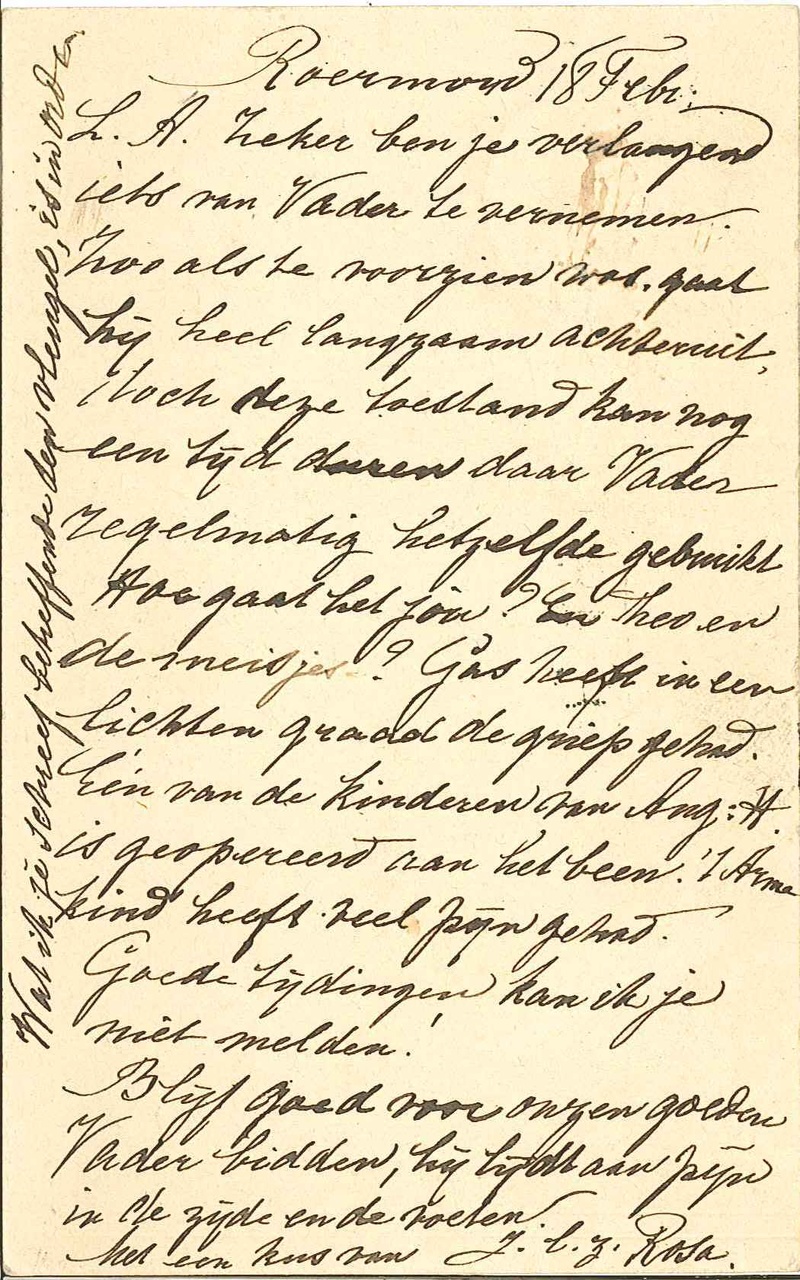 Roermond 18 Febr.
L. A. Zeker ben je verlangend
iets van Vader te vernemen.
Zoo als te voorzien was, gaat
hij heel langzaam achteruit,
toch deze toestand kan nog
een tijd duren daar Vader
regelmatig hetzelfde gebruikt
Hoe gaat het jou? En Theo en
de meisjes? Gas heeft in een
lichten graad de griep gehad.
Eén van de kinderen van Aug: H.
is geopereerd aan het been. 't Arme
kind heeft veel pijn gehad.
Goede tijdingen kan ik je
niet melden!
Blijf goed voor onzen goeden
Vader bidden, hij lijdt aan pijn
in de zijde en de voeten.
Met een kus van J. l. z. Rosa.
Wat ik je schreef betreffende den vleugel, is in orde.